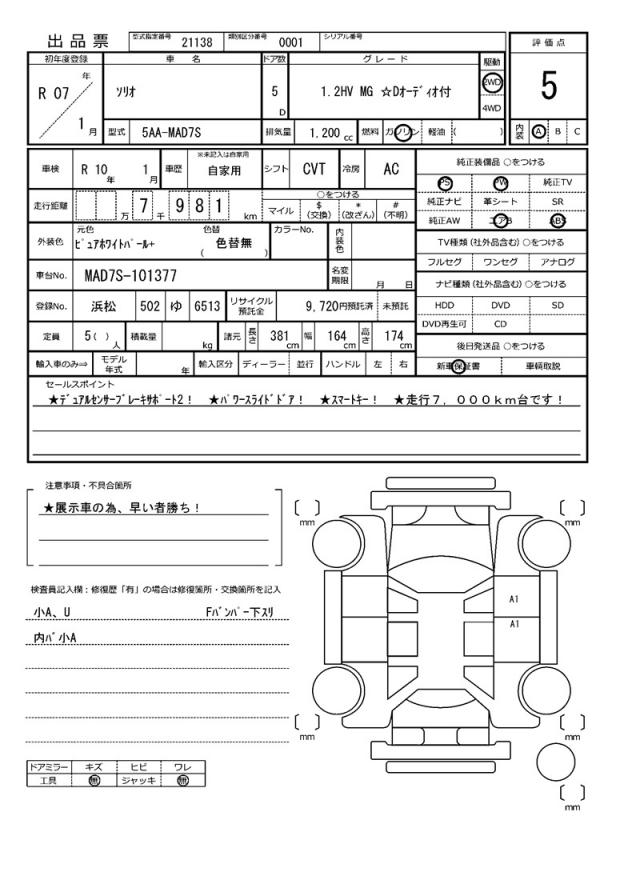 出品票
型式指定番号 21138 類別区分番号 0001 シリアル番号
初年度登録 車名 ドア数 グレード 駆動 評価点
R 07 年 1 月
ソリオ 5 D 1.2HV MG ☆Dオーディオ付 2WD 4WD
5
型式 5AA-MAD7S 排気量 1.200 cc 燃料 ガソリン 軽油 ( ) 内装 A B C
車検 R 10 年 1 月 車歴 ※未記入は自家用 自家用 シフト CVT 冷房 AC
純正装備品 ○をつける
PS PW 純正TV
純正ナビ 革シート SR
純正AW エアB ABS
走行距離 万 7 千 9 8 1 km
○をつける
マイル $ (交換) * (改ざん) # (不明)
外装色 元色 ピュアホワイトパール+ 色替 ( 色替無 ) カラーNo. 内装色
TV種類 (社外品含む) ○をつける
フルセグ ワンセグ アナログ
車台No. MAD7S-101377 名変期限 月 日
ナビ種類 (社外品含む) ○をつける
HDD DVD SD
DVD再生可 CD
登録No. 浜松 502 ゆ 6513 リサイクル預託金 9,720円預託済 未預託
定員 5( ) 人 積載量 kg 諸元 長さ 381 cm 幅 164 cm 高さ 174 cm
後日発送品 ○をつける
新車保証書 車輌取説
輸入車のみ⇒ モデル年式 年 輸入区分 ディーラー 並行 ハンドル 左 右
セールスポイント
★デュアルセンサーブレーキサポート2! ★パワースライドドア! ★スマートキー! ★走行7,000km台です!
注意事項・不具合箇所
★展示車の為、早い者勝ち!
検査員記入欄:修復歴「有」の場合は修復箇所・交換箇所を記入
小A、U Fバンパー下スリ
内バ小A
[ ] mm
[ ] mm
A1
A1
[ ] mm
[ ] mm
[ ] mm
ドアミラー キズ ヒビ ワレ
工具 無 ジャッキ 無